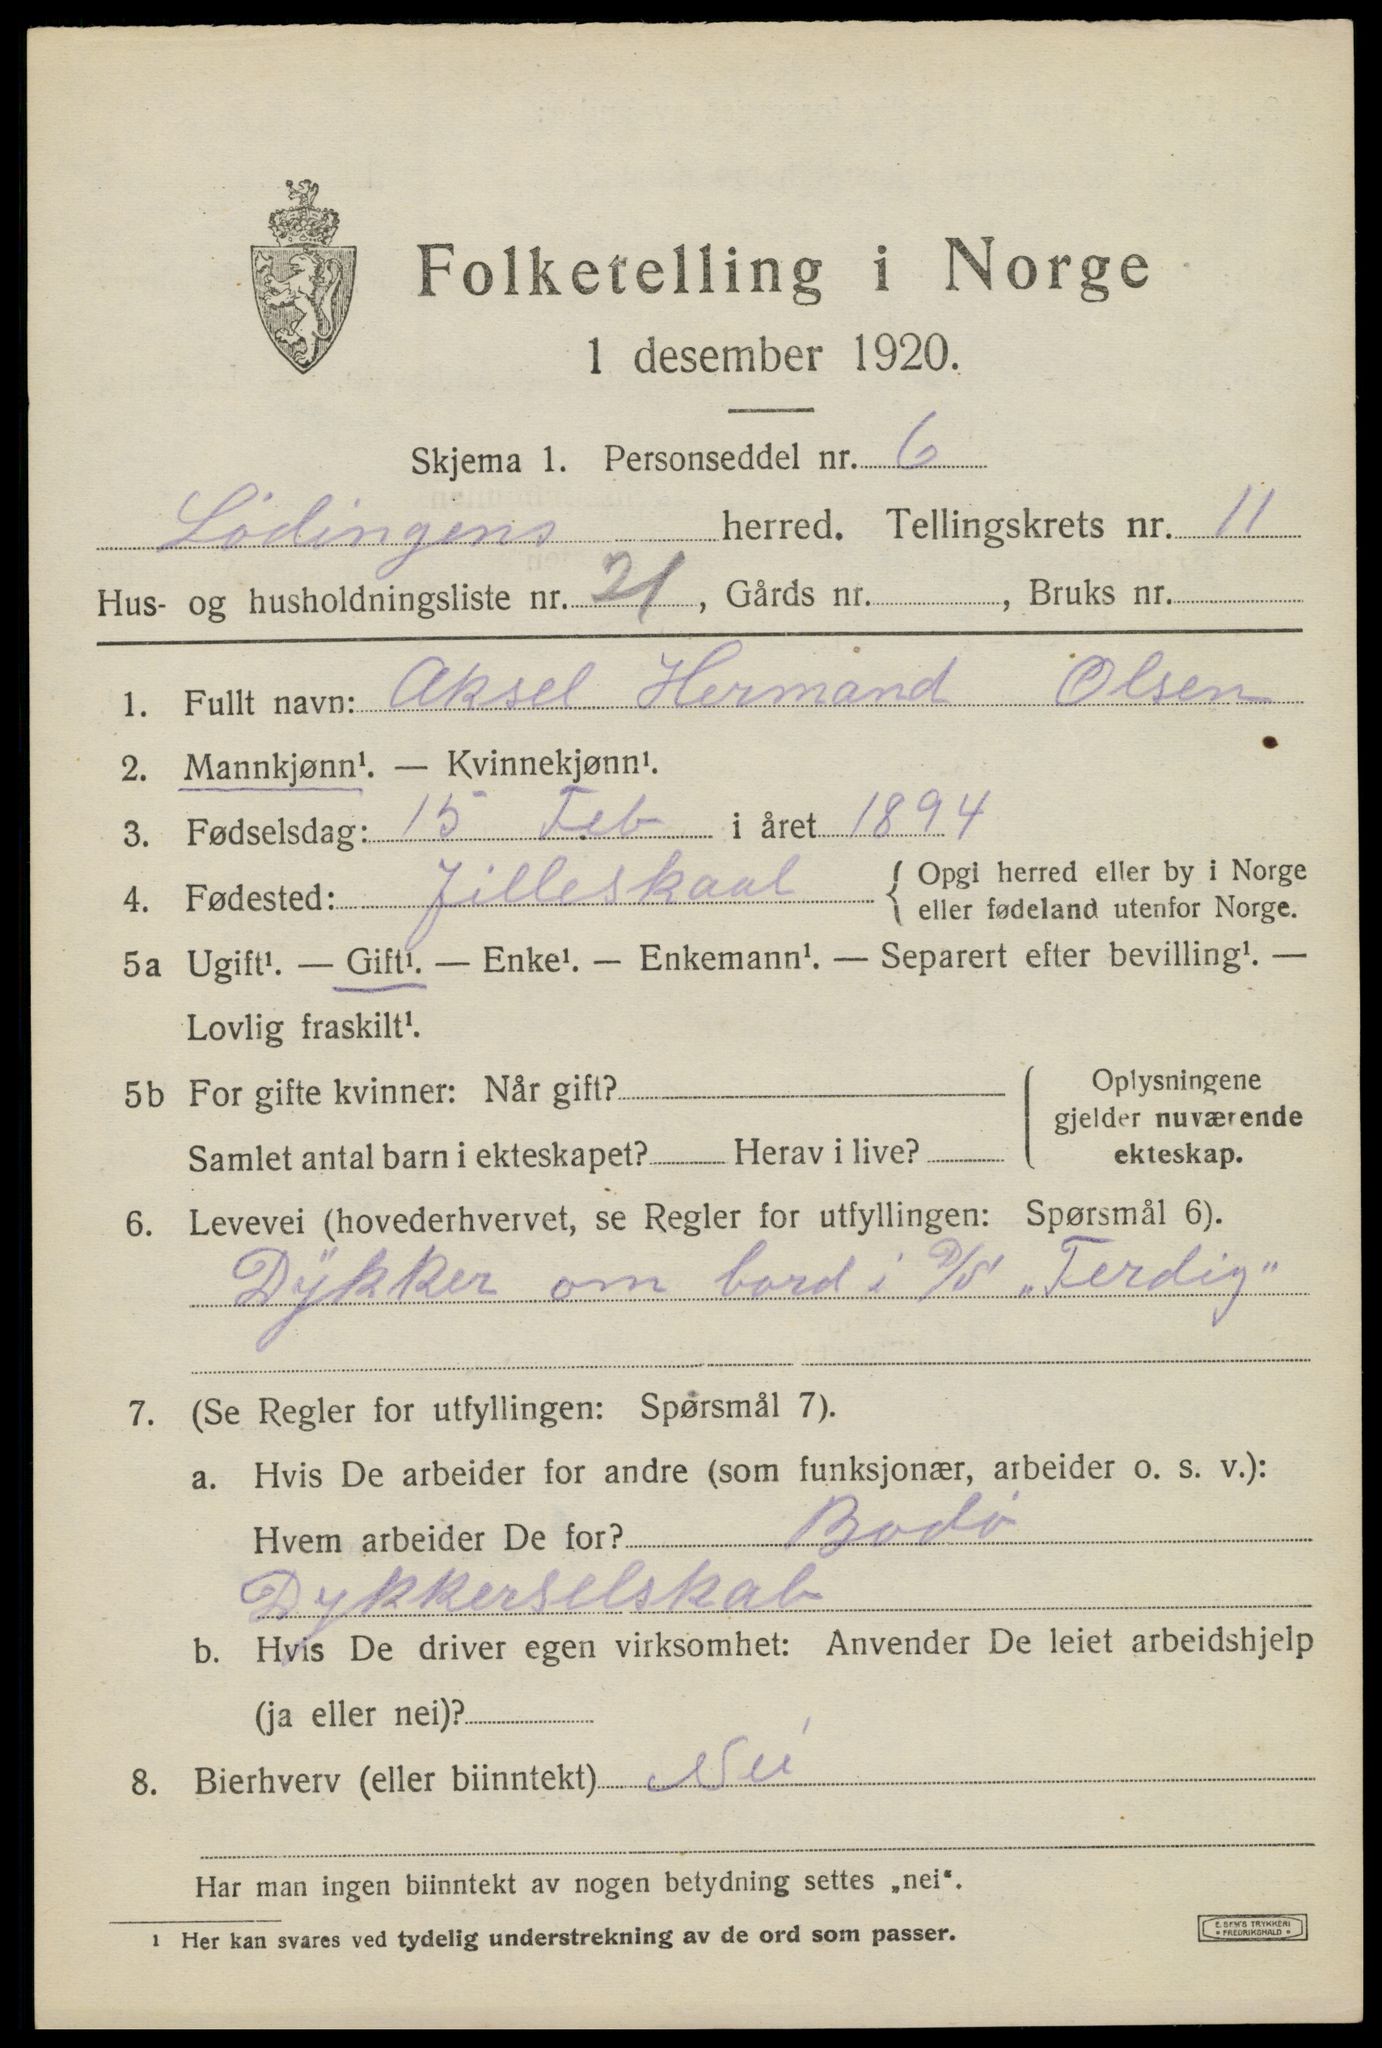 Folketelling i Norge
1 desember 1920.
Skjema 1. Personseddel nr. 6
Lödingens herred. Tellingskrets nr. 11
Hus- og husholdningsliste nr. 21, Gårds nr. , Bruks nr.
1. Fullt navn: Aksel Hermand Olsen
2. Mannkjønn¹. — Kvinnekjønn¹.
3. Fødselsdag: 15 Feb i året 1894
4. Fødested: Jilleskaal { Opgi herred eller by i Norge
eller fødeland utenfor Norge.
5a Ugift¹. — Gift¹. — Enke¹. — Enkemann¹. — Separert efter bevilling¹. —
Lovlig fraskilt¹.
5b For gifte kvinner: Når gift?
Samlet antal barn i ekteskapet? Herav i live?
Oplysningene
gjelder nuværende
ekteskap.
6. Levevei (hovederhvervet, se Regler for utfyllingen: Spørsmål 6).
Dÿkker om bord i D/S „Ferdig"
7. (Se Regler for utfyllingen: Spørsmål 7).
a. Hvis De arbeider for andre (som funksjonær, arbeider o. s. v.):
Hvem arbeider De for? Bodö
Dykkerselskab
b. Hvis De driver egen virksomhet: Anvender De leiet arbeidshjelp
(ja eller nei)?
8. Bierhverv (eller biinntekt) Nei
Har man ingen biinntekt av nogen betydning settes „nei“.
¹ Her kan svares ved tydelig understrekning av de ord som passer.
E. SEM'S TRYKKERI
FREDRIKSHALD